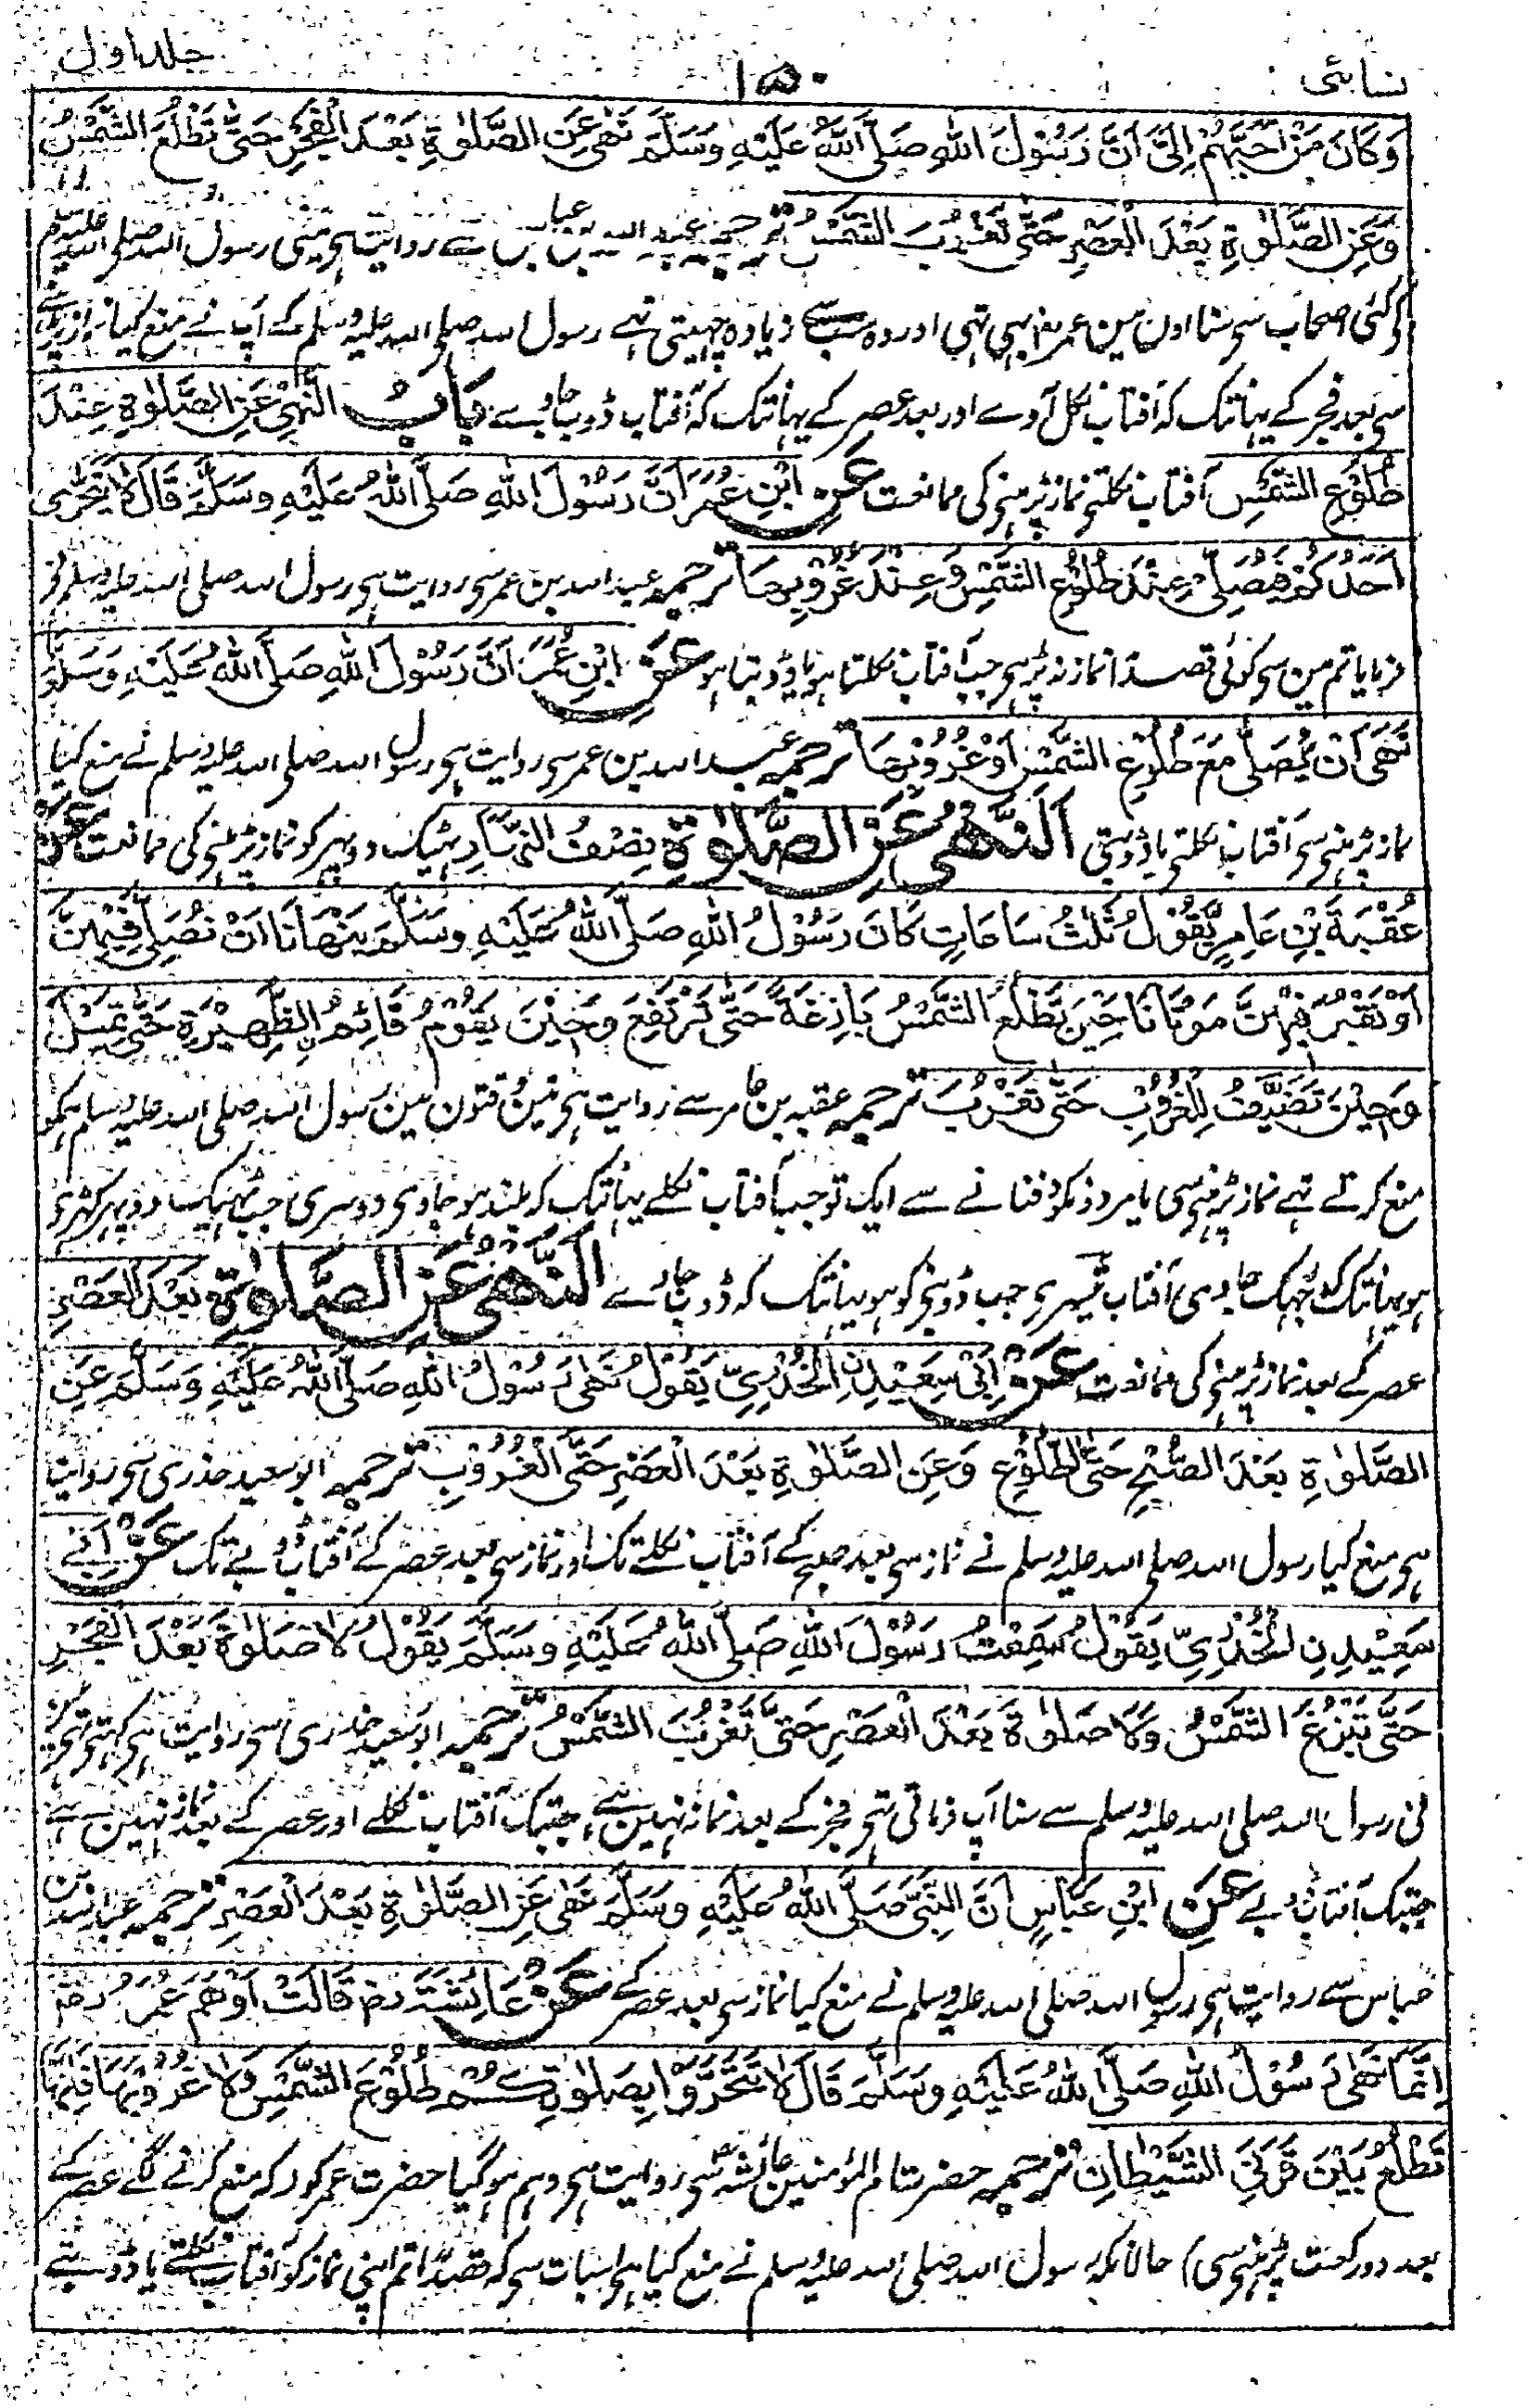 نسائی ۱۵۰ جلد اول
وَكَانَ مَنْ اَحَبَّهُمْ اِلَیَّ اَنَّ رَسُوْلَ اللهِ صَلَّى اللهُ عَلَيْهِ وَسَلَّمَ نَهٰى عَنِ الصَّلٰوةِ بَعْدَ الْفَجْرِ حَتّٰى تَطْلُعَ الشَّمْسُ
وَعَنِ الصَّلٰوةِ بَعْدَ الْعَصْرِ حَتّٰى تَغْرُبَ الشَّمْسُ ترجمہ عبد اللہ بن عباس سے روایت ہی مینی رسول اللہ صلی اللہ علیہ وسلم
کی کئی اصحاب سی سنا اون مین عمر بہی تہی اور وہ سب سے زیادہ چہیتی تہے رسول اللہ صلی اللہ علیہ وسلم کے آپ نے منع کیا نماز پڑہنے
سی بعد فجر کے یہانتک کہ آفتاب نکل آوے اور بعد عصر کے یہانتک کہ آفتاب ڈوب جاوے بَابُ النَّهْیِ عَنِ الصَّلٰوةِ عِنْدَ
طُلُوْعِ الشَّمْسِ آفتاب نکلتی نماز پڑہنی کی ممانعت عَنِ ابْنِ عُمَرَ اَنَّ رَسُوْلَ اللهِ صَلَّى اللهُ عَلَيْهِ وَسَلَّمَ قَالَ لَا يَتَحَرّٰى
اَحَدُكُمْ فَيُصَلِّیْ عِنْدَ طُلُوْعِ الشَّمْسِ وَعِنْدَ غُرُوْبِهَا ترجمہ عبد اللہ بن عمر سی روایت ہی رسول اللہ صلی اللہ علیہ وسلم نی
فرمایا تم مین سی کوئی قصدا نماز نہ پڑہی جب آفتاب نکلتا ہو یا ڈوبتا ہو عَنِ ابْنِ عُمَرَ اَنَّ رَسُوْلَ اللهِ صَلَّى اللهُ عَلَيْهِ وَسَلَّمَ
نَهٰى اَنْ يُصَلّٰى مَعَ طُلُوْعِ الشَّمْسِ اَوْ غُرُوْبِهَا ترجمہ عبد اللہ بن عمر سی روایت ہی رسول اللہ صلی اللہ علیہ وسلم نے منع کیا
نماز پڑہنی سی آفتاب نکلتی یا ڈوبتی اَلنَّهْیُ عَنِ الصَّلٰوةِ نِصْفَ النَّهَارِ ٹہیک دوپہر کو نماز پڑہنی کی ممانعت عَنْ
عُقْبَةَ بْنِ عَامِرٍ يَّقُوْلُ ثَلٰثُ سَاعَاتٍ كَانَ رَسُوْلُ اللهِ صَلَّى اللهُ عَلَيْهِ وَسَلَّمَ يَنْهَانَا اَنْ نُصَلِّیَ فِيْهِنَّ
اَوْ نَقْبُرَ فِيْهِنَّ مَوْتَانَا حِيْنَ تَطْلُعُ الشَّمْسُ بَازِغَةً حَتّٰى تَرْتَفِعَ وَحِيْنَ يَقُوْمُ قَائِمُ الظَّهِيْرَةِ حَتّٰى تَمِيْلَ
وَحِيْنَ تَضَيَّفُ لِلْغُرُوْبِ حَتّٰى تَغْرُبَ ترجمہ عقبہ بن عامر سے روایت ہی تین وقتون مین رسول اللہ صلی اللہ علیہ وسلم ہمکو
منع کرتے تہے نماز پڑہنی سی یا مردونکو دفنانے سے ایک تو جب آفتاب نکلے یہانتک کہ بلند ہو جاوی دوسری جب ٹہیک دوپہر کہڑی
ہو یہانتک کہ جہک جاوی آفتاب تیسری جب ڈوبنی کو ہو یہانتک کہ ڈوب جائے اَلنَّهْیُ عَنِ الصَّلٰوةِ بَعْدَ الْعَصْرِ
عصر کے بعد نماز پڑہنی کی ممانعت عَنْ اَبِیْ سَعِيْدِنِ الْخُدْرِیِّ يَقُوْلُ نَهٰى رَسُوْلُ اللهِ صَلَّى اللهُ عَلَيْهِ وَسَلَّمَ عَنِ
الصَّلٰوةِ بَعْدَ الصُّبْحِ حَتَّى الطُّلُوْعِ وَعَنِ الصَّلٰوةِ بَعْدَ الْعَصْرِ حَتَّى الْغُرُوْبِ ترجمہ ابو سعید خدری سی روایت
ہی منع کیا رسول اللہ صلی اللہ علیہ وسلم نے نماز سی بعد صبح کے آفتاب نکلتے تک اور نماز سی بعد عصر کے آفتاب ڈوبے تک عَنْ اَبِیْ
سَعِيْدِنِ الْخُدْرِیِّ يَقُوْلُ سَمِعْتُ رَسُوْلَ اللهِ صَلَّى اللهُ عَلَيْهِ وَسَلَّمَ يَقُوْلُ لَا صَلٰوةَ بَعْدَ الْفَجْرِ
حَتّٰى تَبْزُغَ الشَّمْسُ وَلَا صَلٰوةَ بَعْدَ الْعَصْرِ حَتّٰى تَغْرُبَ الشَّمْسُ ترجمہ ابو سعید خدری سی روایت ہی کہتی تہی مین
نی رسول اللہ صلی اللہ علیہ وسلم سے سنا آپ فرماتی تہی فجر کے بعد نماز نہین ہے جبتک آفتاب نکلے اور عصر کے بعد نماز نہین ہے
جبتک آفتاب ڈوبے عَنِ ابْنِ عَبَّاسٍ اَنَّ النَّبِیَّ صَلَّى اللهُ عَلَيْهِ وَسَلَّمَ نَهٰى عَنِ الصَّلٰوةِ بَعْدَ الْعَصْرِ ترجمہ عبد اللہ بن
عباس سے روایت ہی رسول اللہ صلی اللہ علیہ وسلم نے منع کیا نماز سی بعد عصر کے عَنْ عَائِشَةَ رض قَالَتْ اَوْهَمَ عُمَرُ رض
اِنَّمَا نَهٰى رَسُوْلُ اللهِ صَلَّى اللهُ عَلَيْهِ وَسَلَّمَ قَالَ لَا تَتَحَرَّوْا بِصَلٰوتِكُمْ طُلُوْعَ الشَّمْسِ وَلَا غُرُوْبَهَا فَاِنَّهَا
تَطْلُعُ بَيْنَ قَرْنَیِ الشَّيْطَانِ ترجمہ حضرت ام المؤمنین عائشہ سی روایت ہی وہم ہو گیا حضرت عمر کو (کہ منع کرنے لگے عصر کے
بعد دو رکعت پڑہنی سی) حالانکہ رسول اللہ صلی اللہ علیہ وسلم نے منع کیا ہی اسبات سی کہ قصدًا تم اپنی نماز کو آفتاب نکلتے یا ڈوبتے